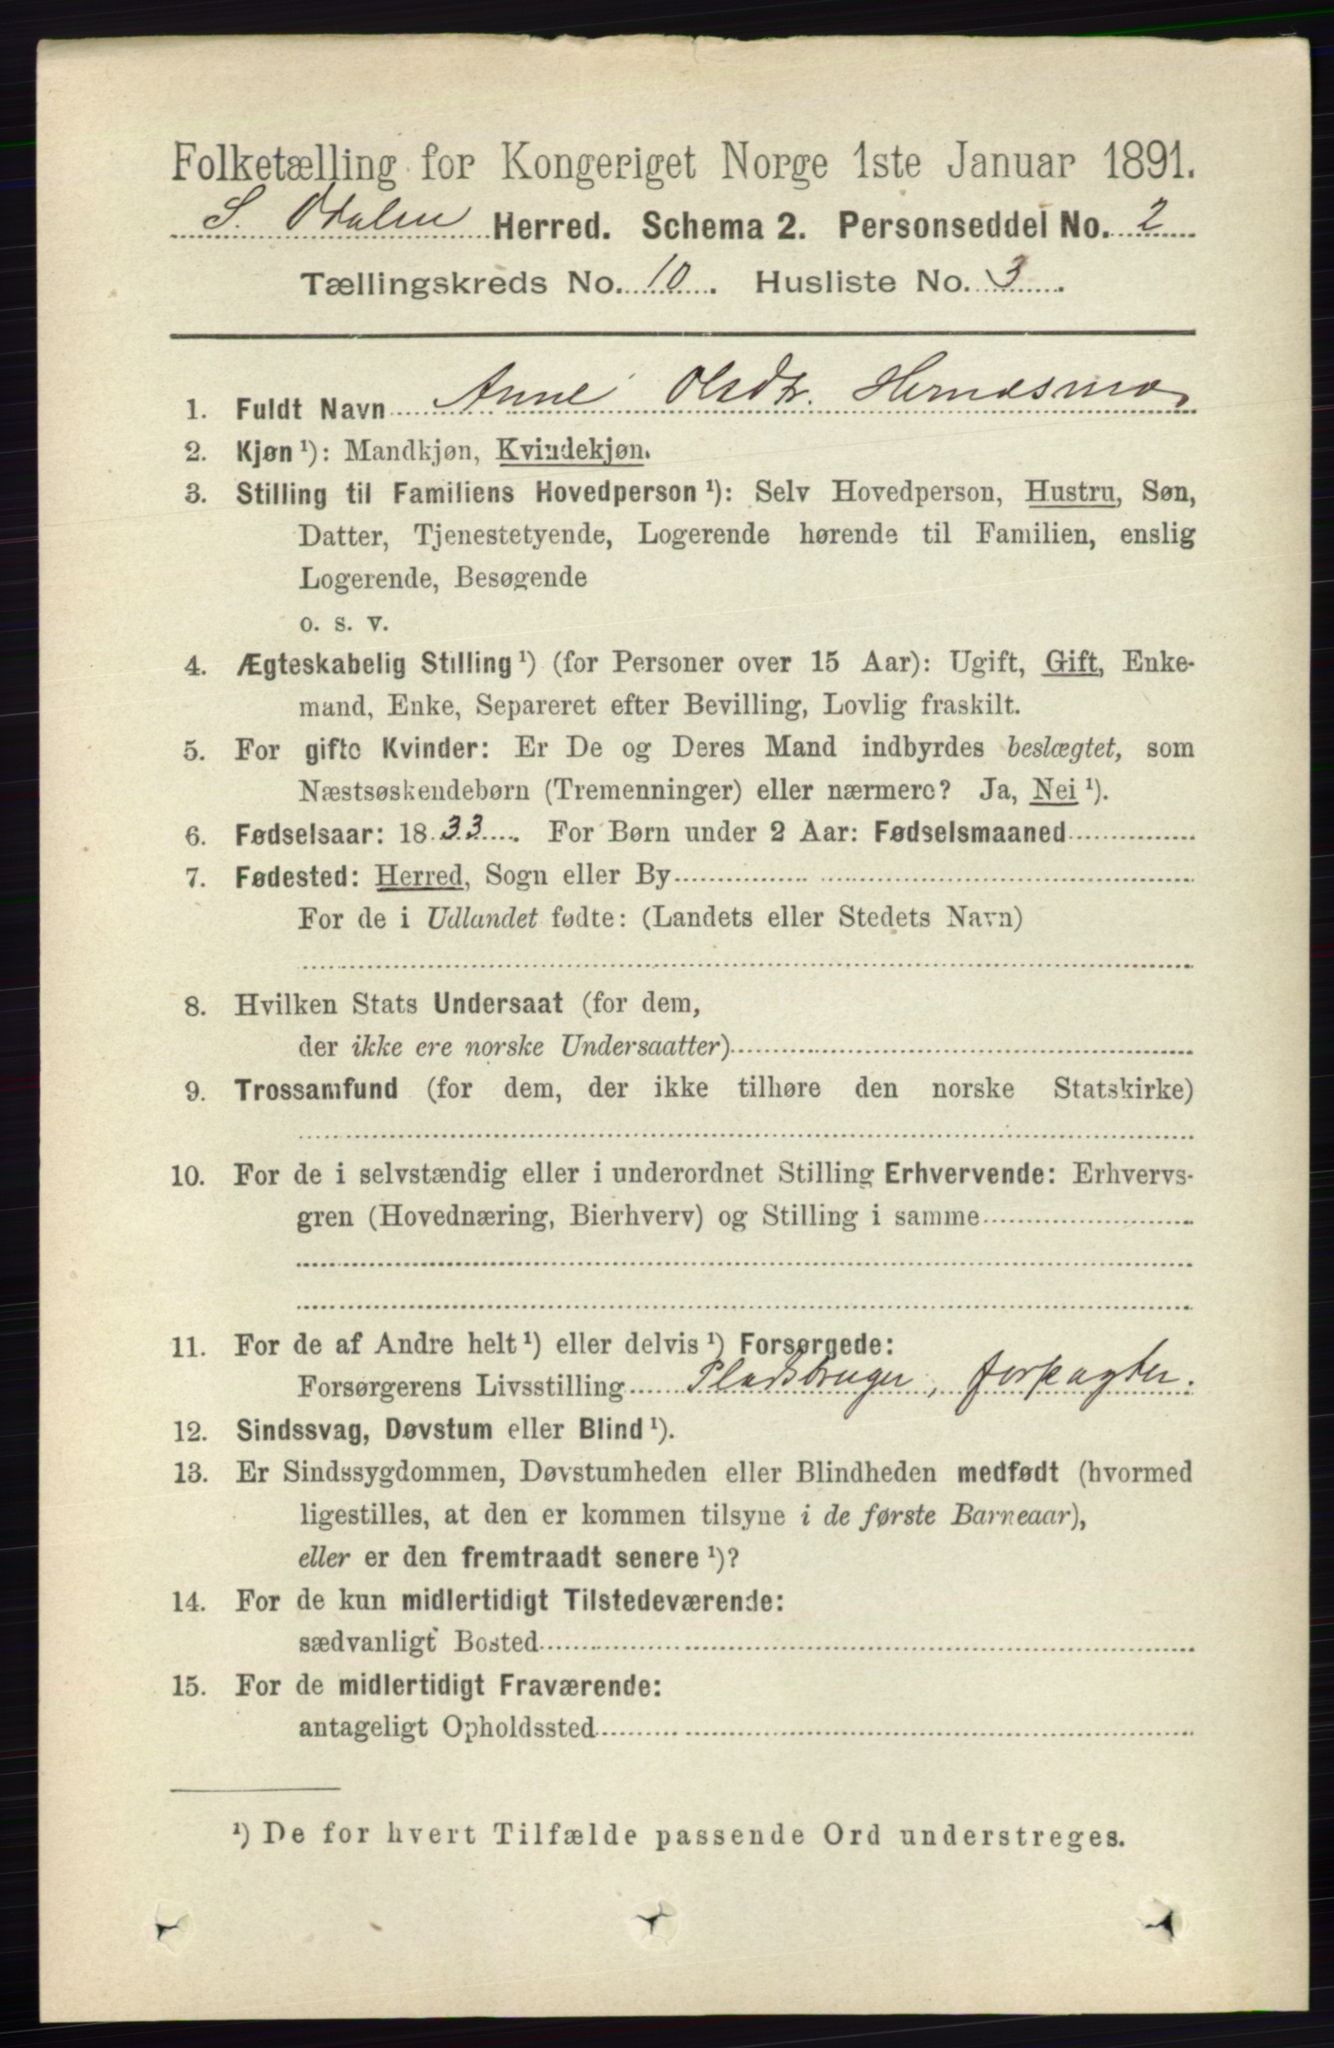 Folketælling for Kongeriget Norge 1ste Januar 1891.
S. Odalen Herred. Schema 2. Personseddel No. 2
Tællingskreds No. 10. Husliste No. 3.
1. Fuldt Navn Anne Olsdtr. Hernæsmo
2. Kjøn ¹): Mandkjøn, Kvindekjøn.
3. Stilling til Familiens Hovedperson ¹): Selv Hovedperson, Hustru, Søn,
Datter, Tjenestetyende, Logerende hørende til Familien, enslig
Logerende, Besøgende
o. s. v.
4. Ægteskabelig Stilling ¹) (for Personer over 15 Aar): Ugift, Gift, Enke-
mand, Enke, Separeret efter Bevilling, Lovlig fraskilt.
5. For gifte Kvinder: Er De og Deres Mand indbyrdes beslægtet, som
Næstsøskendebørn (Tremenninger) eller nærmere? Ja, Nei ¹).
6. Fødselsaar: 1833. For Børn under 2 Aar: Fødselsmaaned
7. Fødested: Herred, Sogn eller By
For de i Udlandet fødte: (Landets eller Stedets Navn)
8. Hvilken Stats Undersaat (for dem,
der ikke ere norske Undersaatter)
9. Trossamfund (for dem, der ikke tilhøre den norske Statskirke)
10. For de i selvstændig eller i underordnet Stilling Erhvervende: Erhvervs-
gren (Hovednæring, Bierhverv) og Stilling i samme
11. For de af Andre helt ¹) eller delvis ¹) Forsørgede:
Forsørgerens Livsstilling Pladsbruger, forpagter.
12. Sindssvag, Døvstum eller Blind ¹).
13. Er Sindssygdommen, Døvstumheden eller Blindheden medfødt (hvormed
ligestilles, at den er kommen tilsyne i de første Barneaar),
eller er den fremtraadt senere ¹)?
14. For de kun midlertidigt Tilstedeværende:
sædvanligt Bosted
15. For de midlertidigt Fraværende:
antageligt Opholdssted
¹) De for hvert Tilfælde passende Ord understreges.